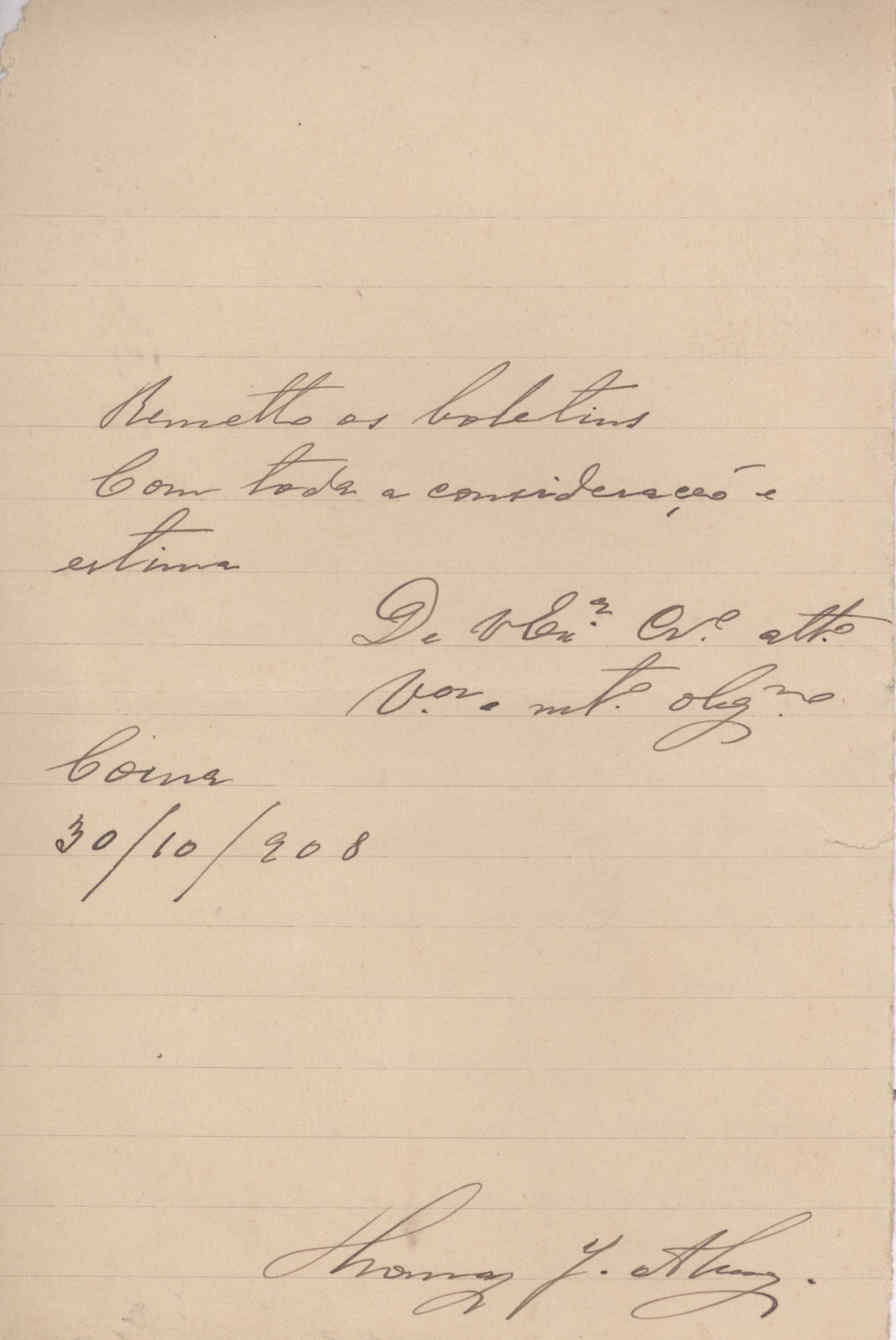 Remetto os boletins
Com toda a consideração e
estima
De V Exª. Crº. attº
V.or e mtº. obgmo.
Coina
30/10/908
Thomaz J. Alvez.